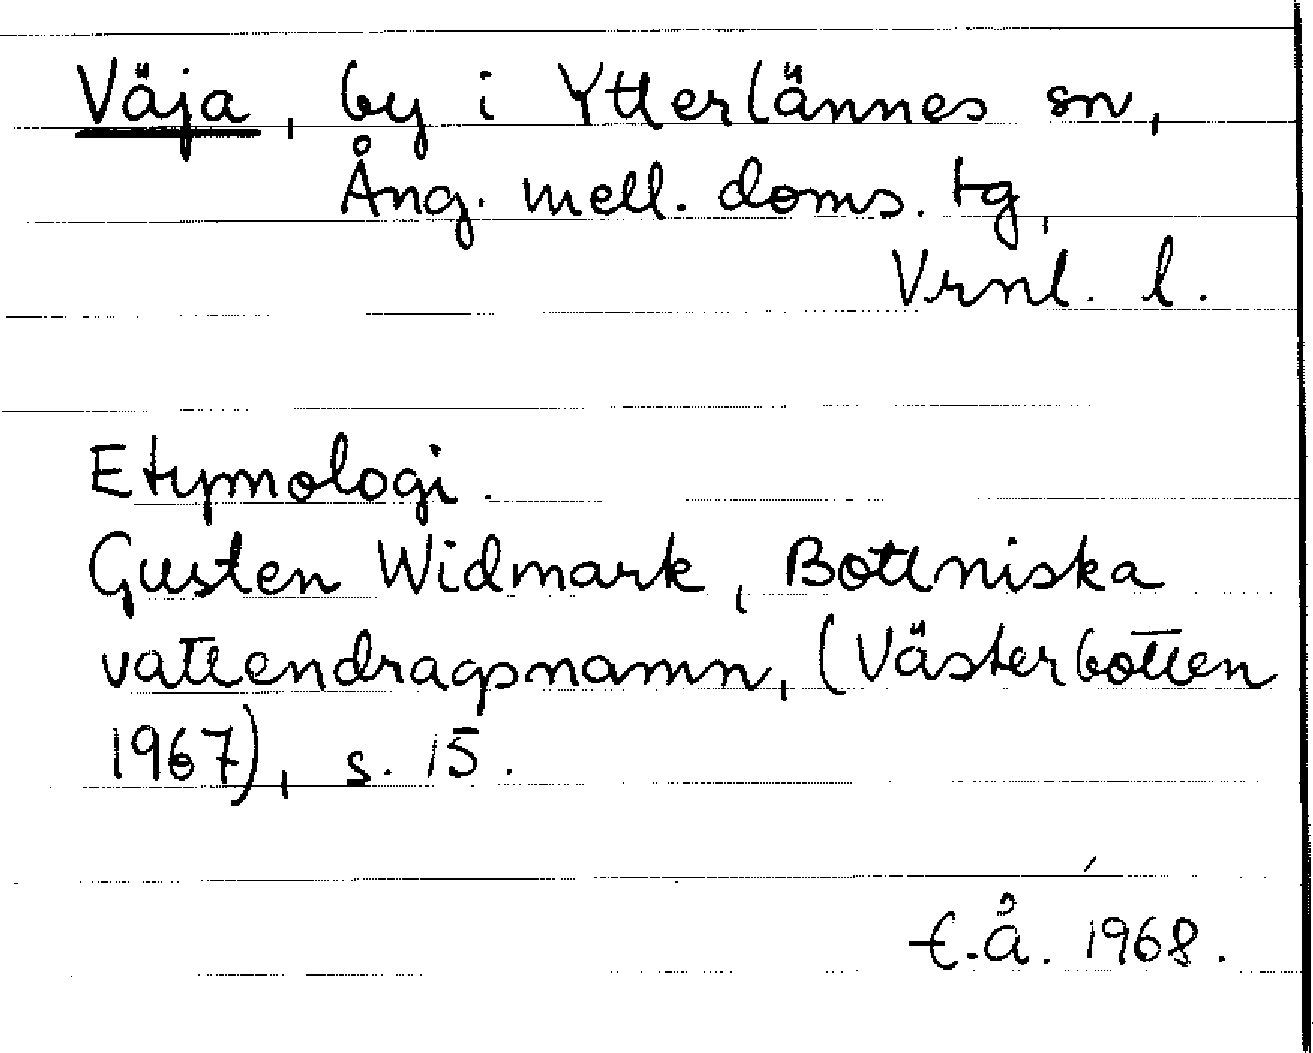 Väja, by i Ytterlännes sn,
Ång. mell. doms. tg,
Vrnl. l.
Etymologi.
Gusten Widmark, Bottniska
vattendragsnamn, (Västerbotten
1967), s. 15.
E.å. 1968.